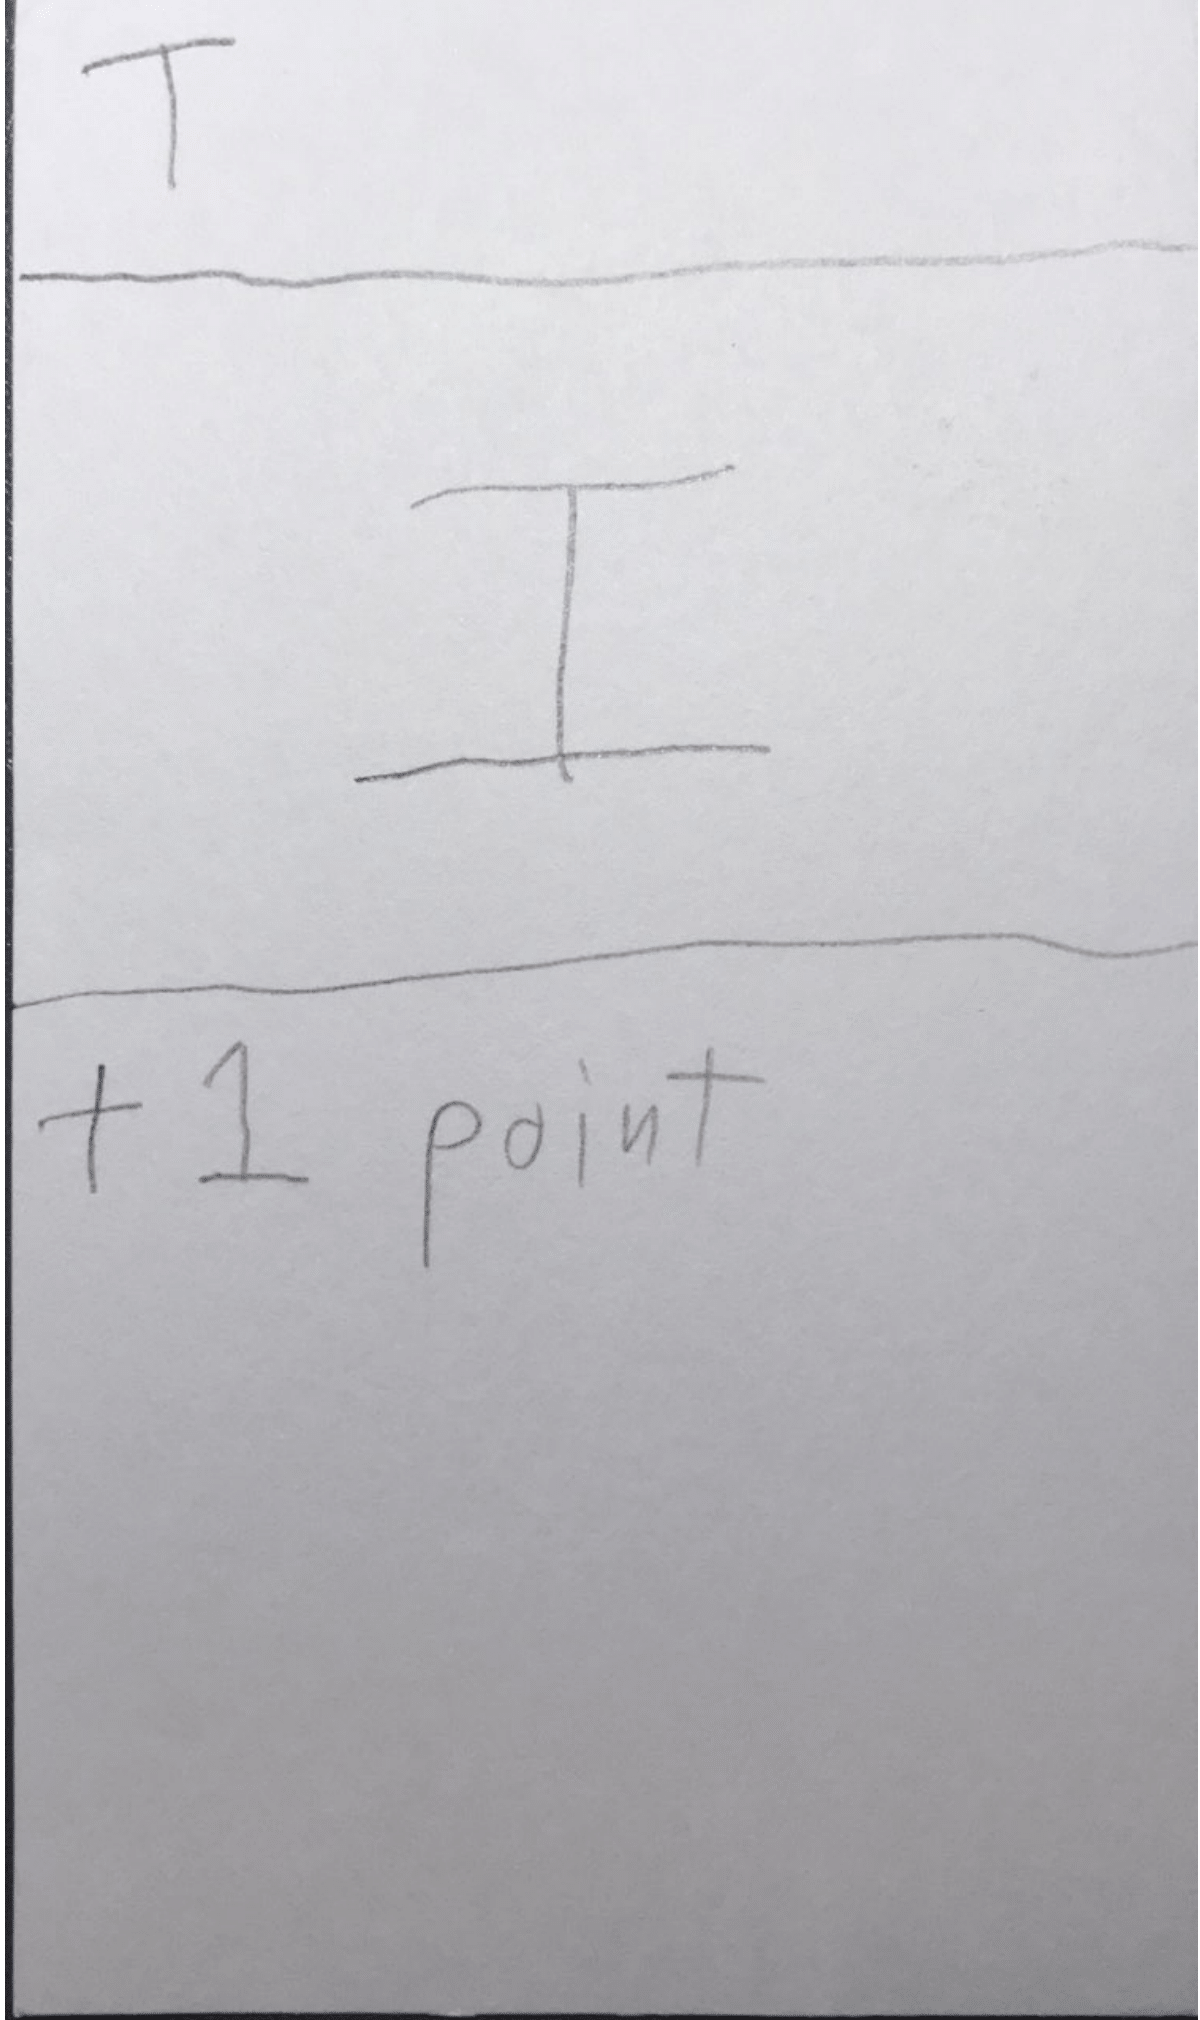 T
I
+1 point